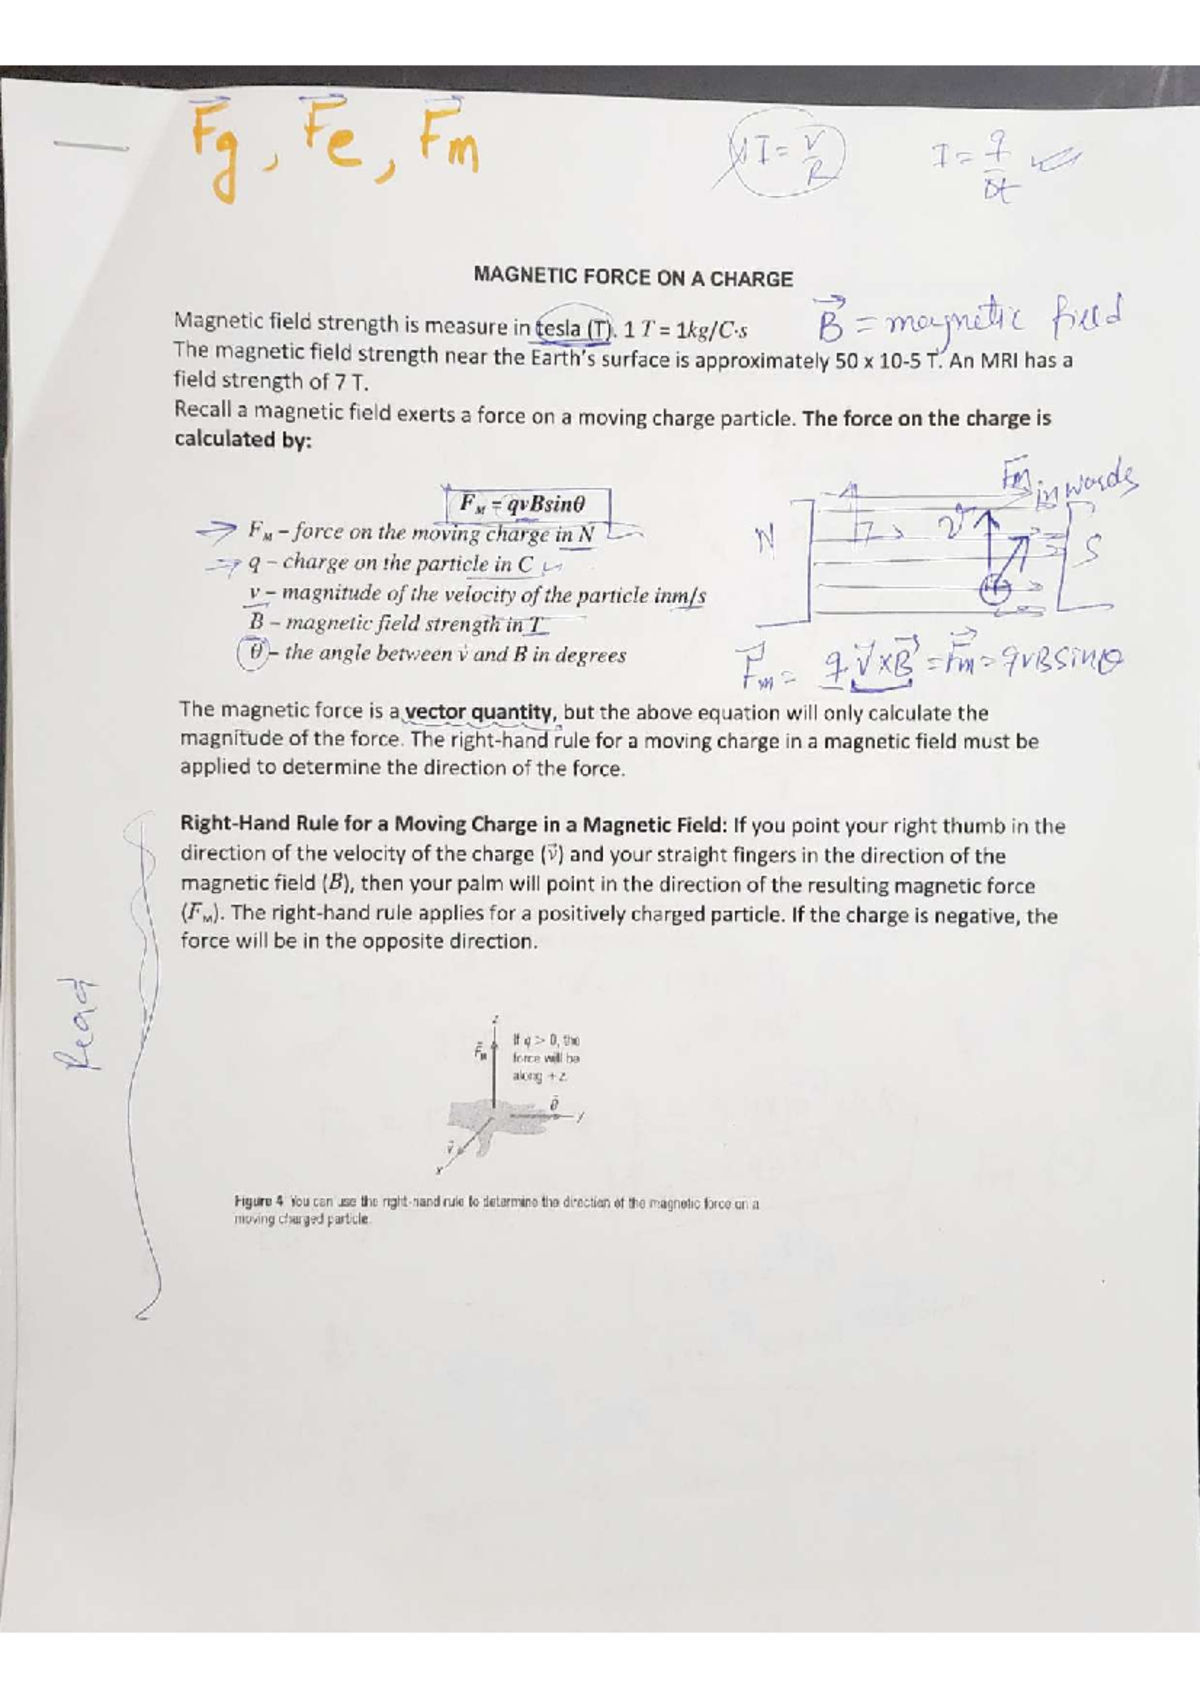 Fg, Fe, Fm
I = V/R
I = q/Δt
MAGNETIC FORCE ON A CHARGE
Magnetic field strength is measure in tesla (T). 1 T = 1kg/C·s
B = magnetic field
The magnetic field strength near the Earth's surface is approximately 50 x 10-5 T. An MRI has a
field strength of 7 T.
Recall a magnetic field exerts a force on a moving charge particle. The force on the charge is
calculated by:
Fm inwards
F_M = qvBsinθ
F_M – force on the moving charge in N
N
v
S
q – charge on the particle in C
v – magnitude of the velocity of the particle inm/s
B – magnetic field strength in T
θ – the angle between v and B in degrees
Fm = q v×B = Fm = qvBsinθ
The magnetic force is a vector quantity, but the above equation will only calculate the
magnitude of the force. The right-hand rule for a moving charge in a magnetic field must be
applied to determine the direction of the force.
Right-Hand Rule for a Moving Charge in a Magnetic Field: If you point your right thumb in the
direction of the velocity of the charge (v⃗) and your straight fingers in the direction of the
magnetic field (B), then your palm will point in the direction of the resulting magnetic force
(F_M). The right-hand rule applies for a positively charged particle. If the charge is negative, the
force will be in the opposite direction.
Read
z
If q > 0, the
F_M
force will be
along +z.
B
y
v
x
Figure 4 You can use the right-hand rule to determine the direction of the magnetic force on a
moving charged particle.